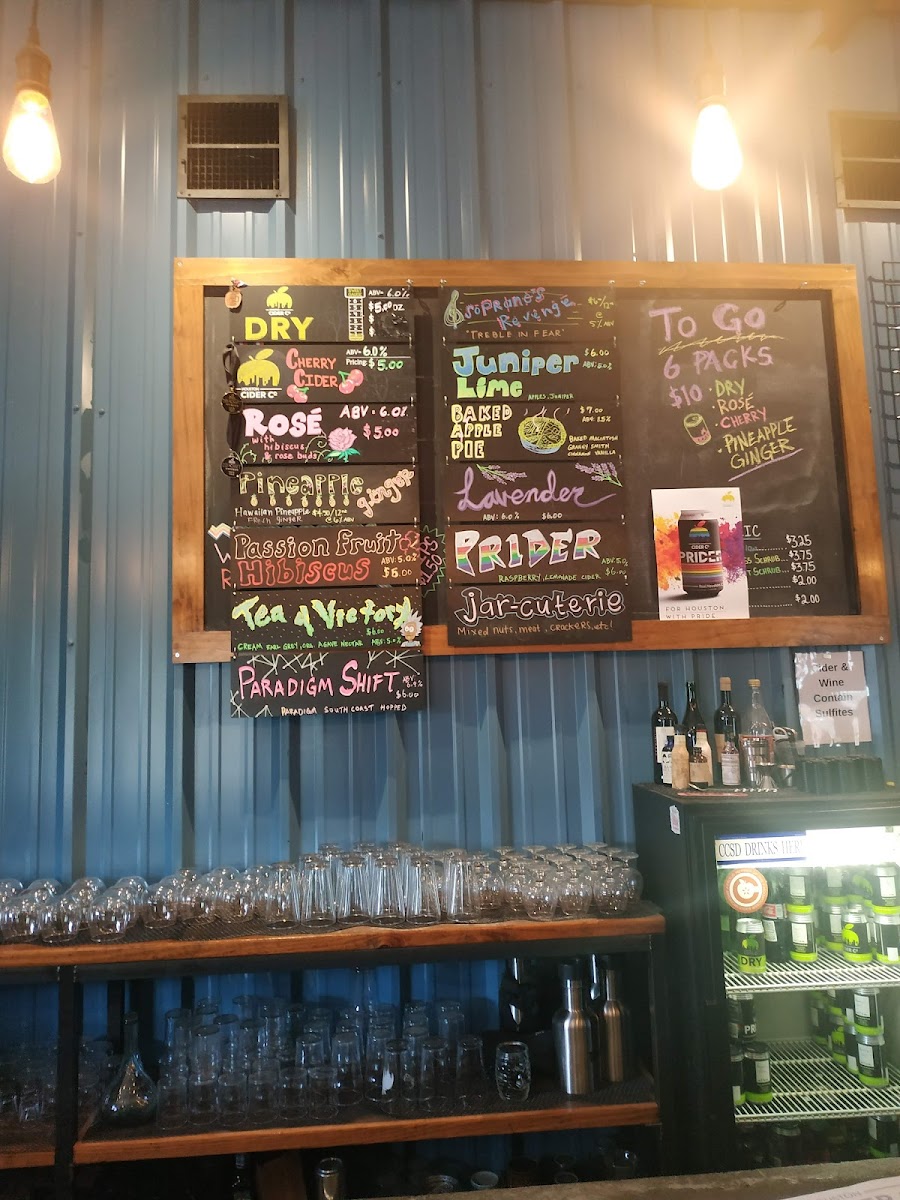 CIDER CO
DRY
ABV= 6.0%
HOUSTON
CIDER CO
CHERRY
CIDER
ABV= 6.0%
Pricing: $5.00
ROSÉ
with
hibiscus
& rose buds
ABV: 6.0%
$5.00
Pineapple
ginger
Hawaiian Pineapple
FRESH GINGER
Passion Fruit
Hibiscus
ABV: 5.0%
$6.00
Tea d Victory
$6.00
CREAM EARL GREY, ORG. AGAVE NECTAR
ABV: 5.0%
PARADIGM SHIFT
ABV
$6.00
PARADIGM SOUTH COAST HOPPED
SOPRANO'S
Revenge
@
5% ABV
"TREBLE IN FEAR"
Juniper
Lime
$6.00
APPLES, JUNIPER
BAKED
APPLE
PIE
$7.00
BAKED MACINTOSH
GRANNY SMITH
CINNAMON VANILLA
Lavender
ABV: 6.0% $6.00
PRIDER
ABV: 5.0
$6.00
RASPBERRY, LEMONADE CIDER
jar-cuterie
Mixed nuts, meat, crackers, etc!
TO GO
6 PACKS
$10
• DRY
• ROSÉ
• CHERRY
• PINEAPPLE
GINGER
CIDER CO
PRIDER
FOR HOUSTON.
WITH PRIDE.
IC
$3.25
SHRUB... $3.75
SHRUB... $3.75
$2.00
$2.00
Cider &
Wine
Contain
Sulfites
CCSD DRINKS HER
DRY